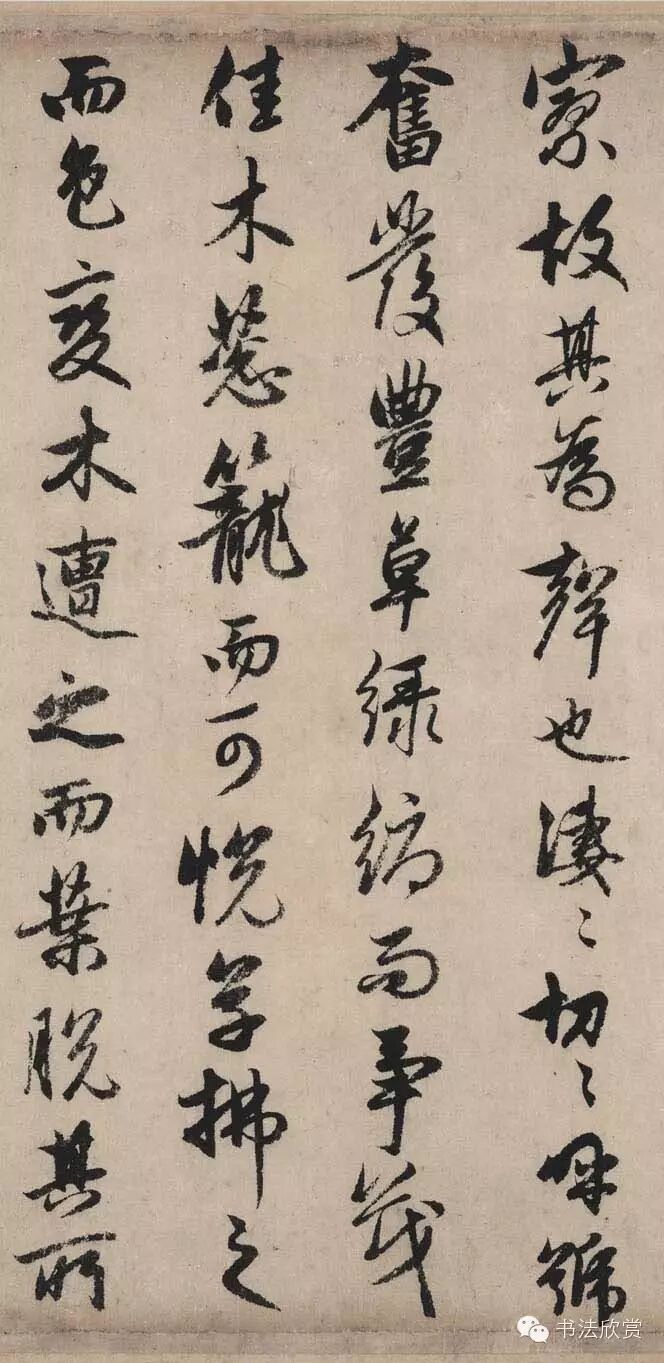 寥故其為聲也淒〻切〻呼號
奮發豐草綠縟而爭茂
佳木蔥籠而可悅草拂之
而色變木遭之而葉脫其所
书法欣赏